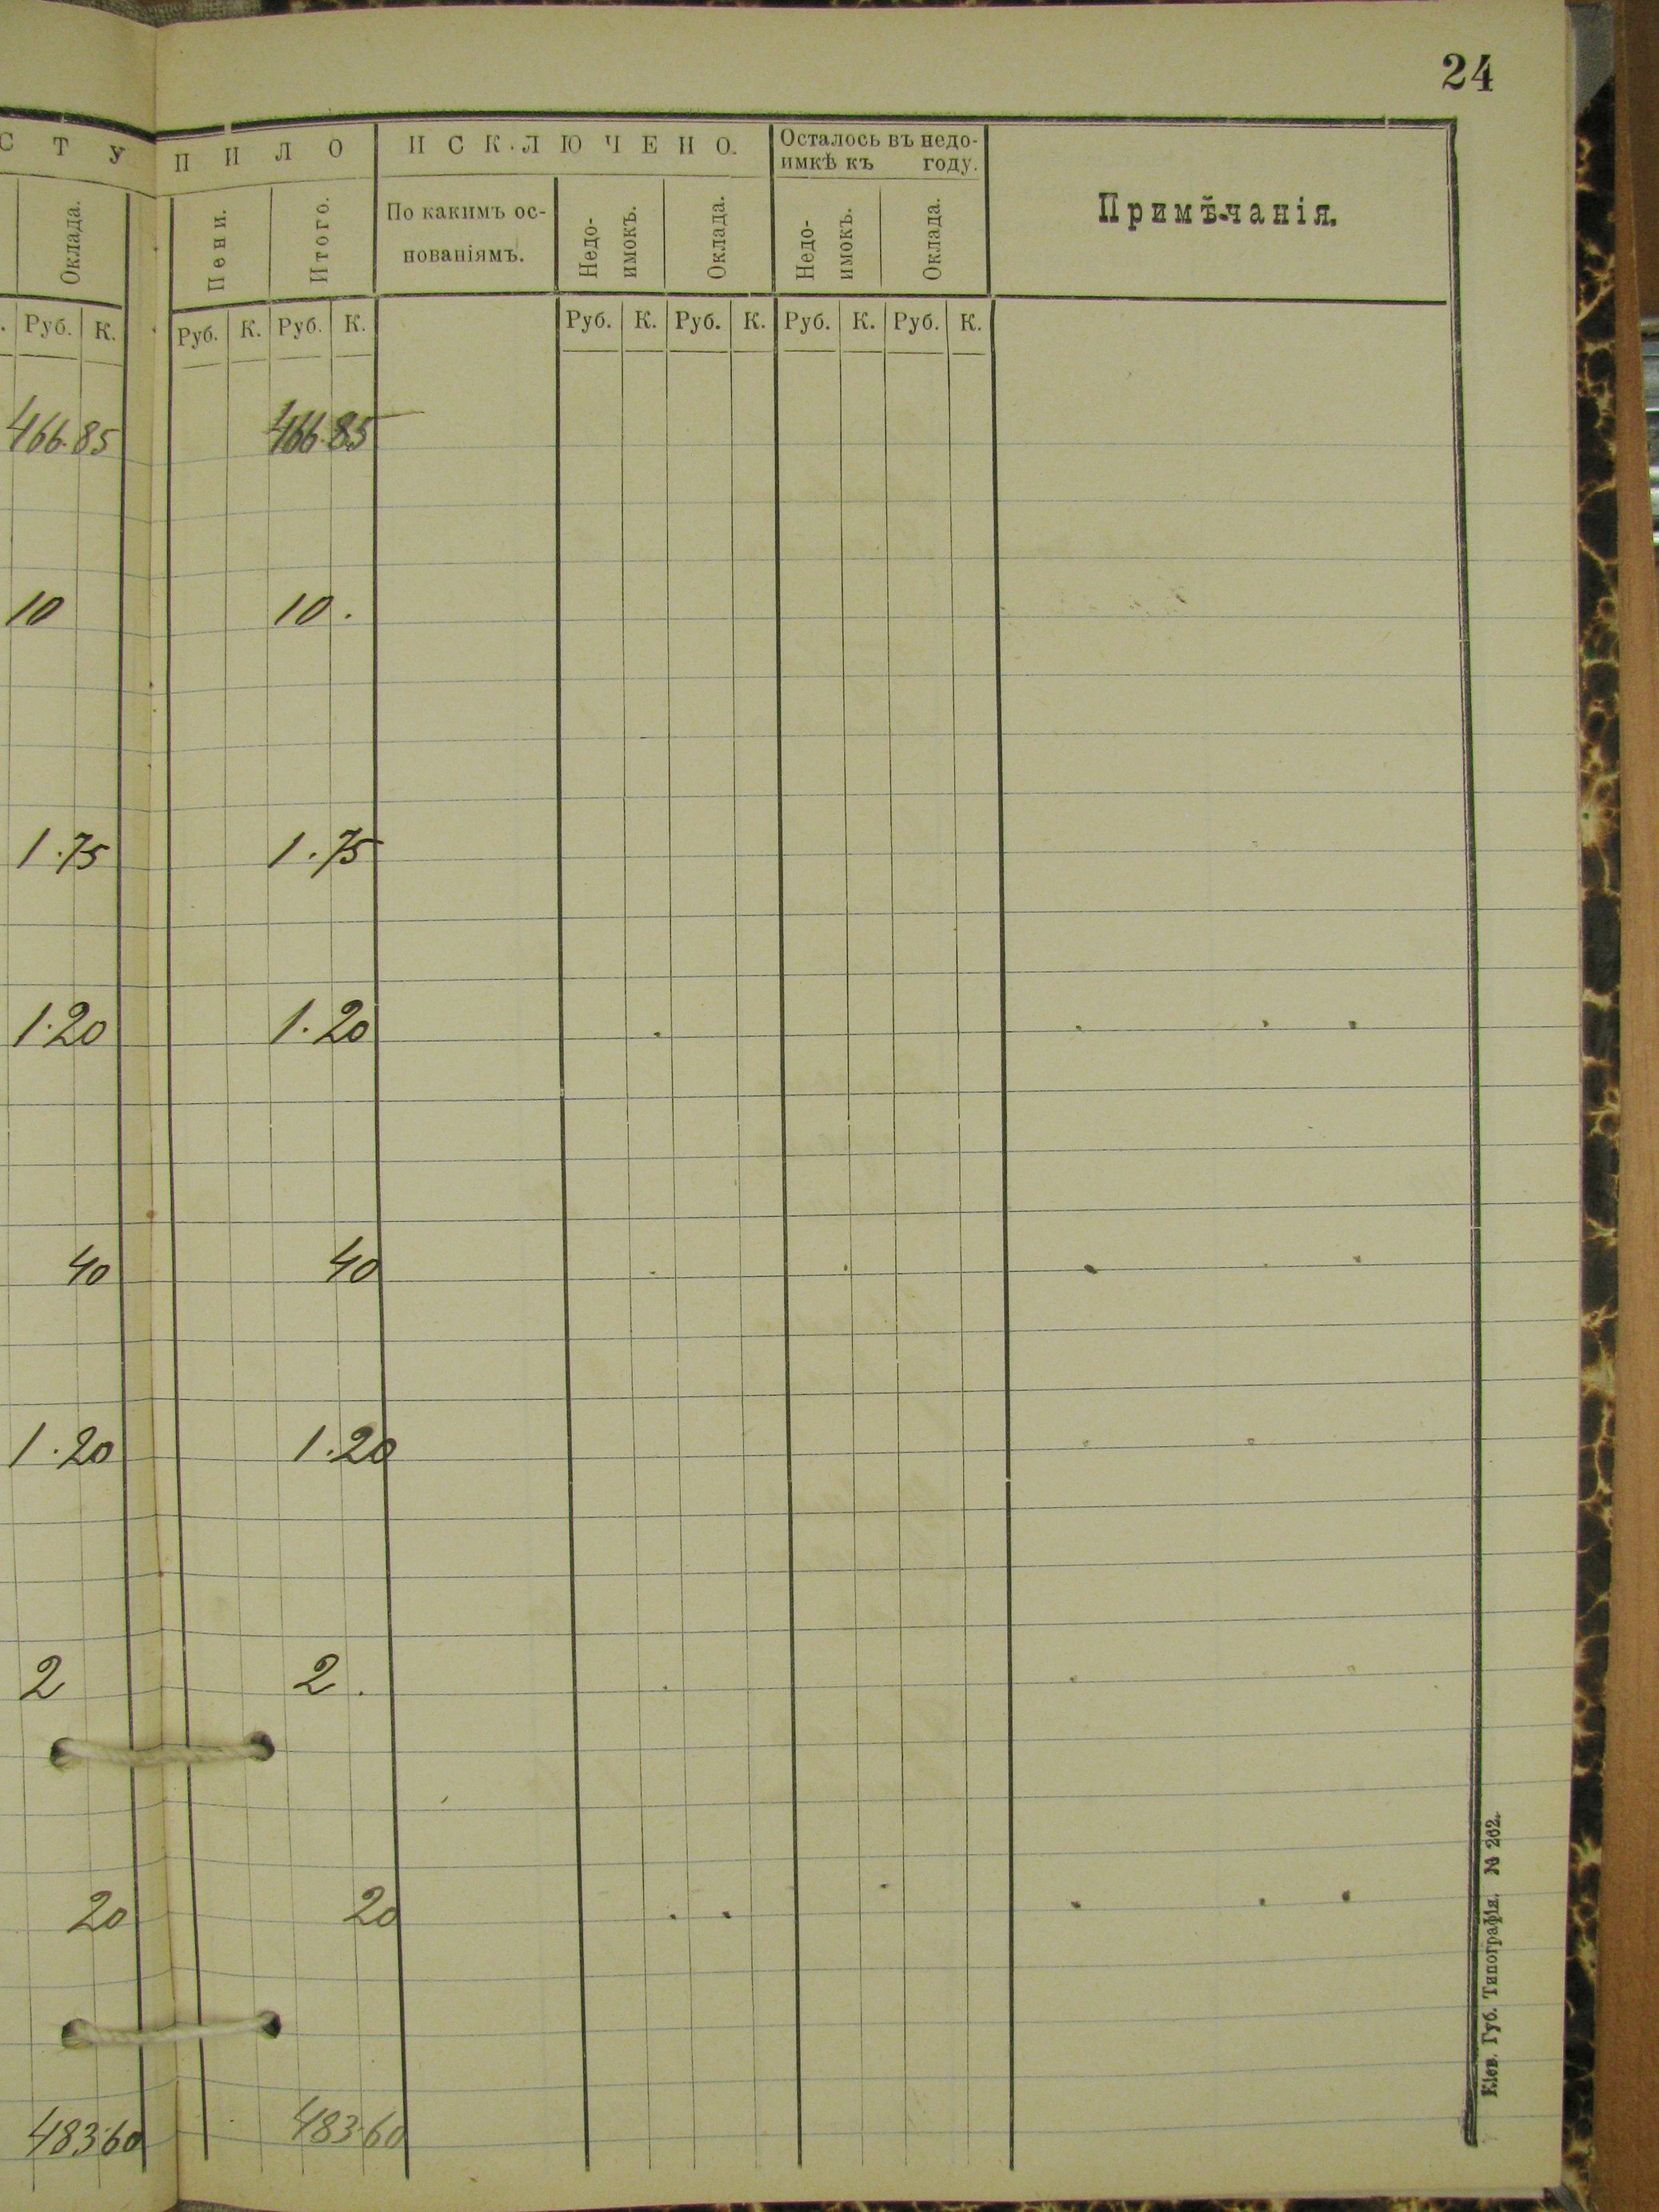 24
СТУПИЛО ИСКЛЮЧЕНО. Осталось въ недо-
имкѣ къ году.
Оклада. Пени. Итого. По какимъ ос-
нованіямъ. Недо-
имокъ. Оклада. Недо-
имокъ. Оклада. Примѣчанія.
. Руб. К. Руб. К. Руб. К. Руб. К. Руб. К. Руб. К. Руб. К.
466.85 466.85
10 10.
1.75 1.75
1.20 1.20
40 40
1.20 1.20
2 2.
20 20
483.60 483.60
Кіев. Губ. Типографія. № 262.